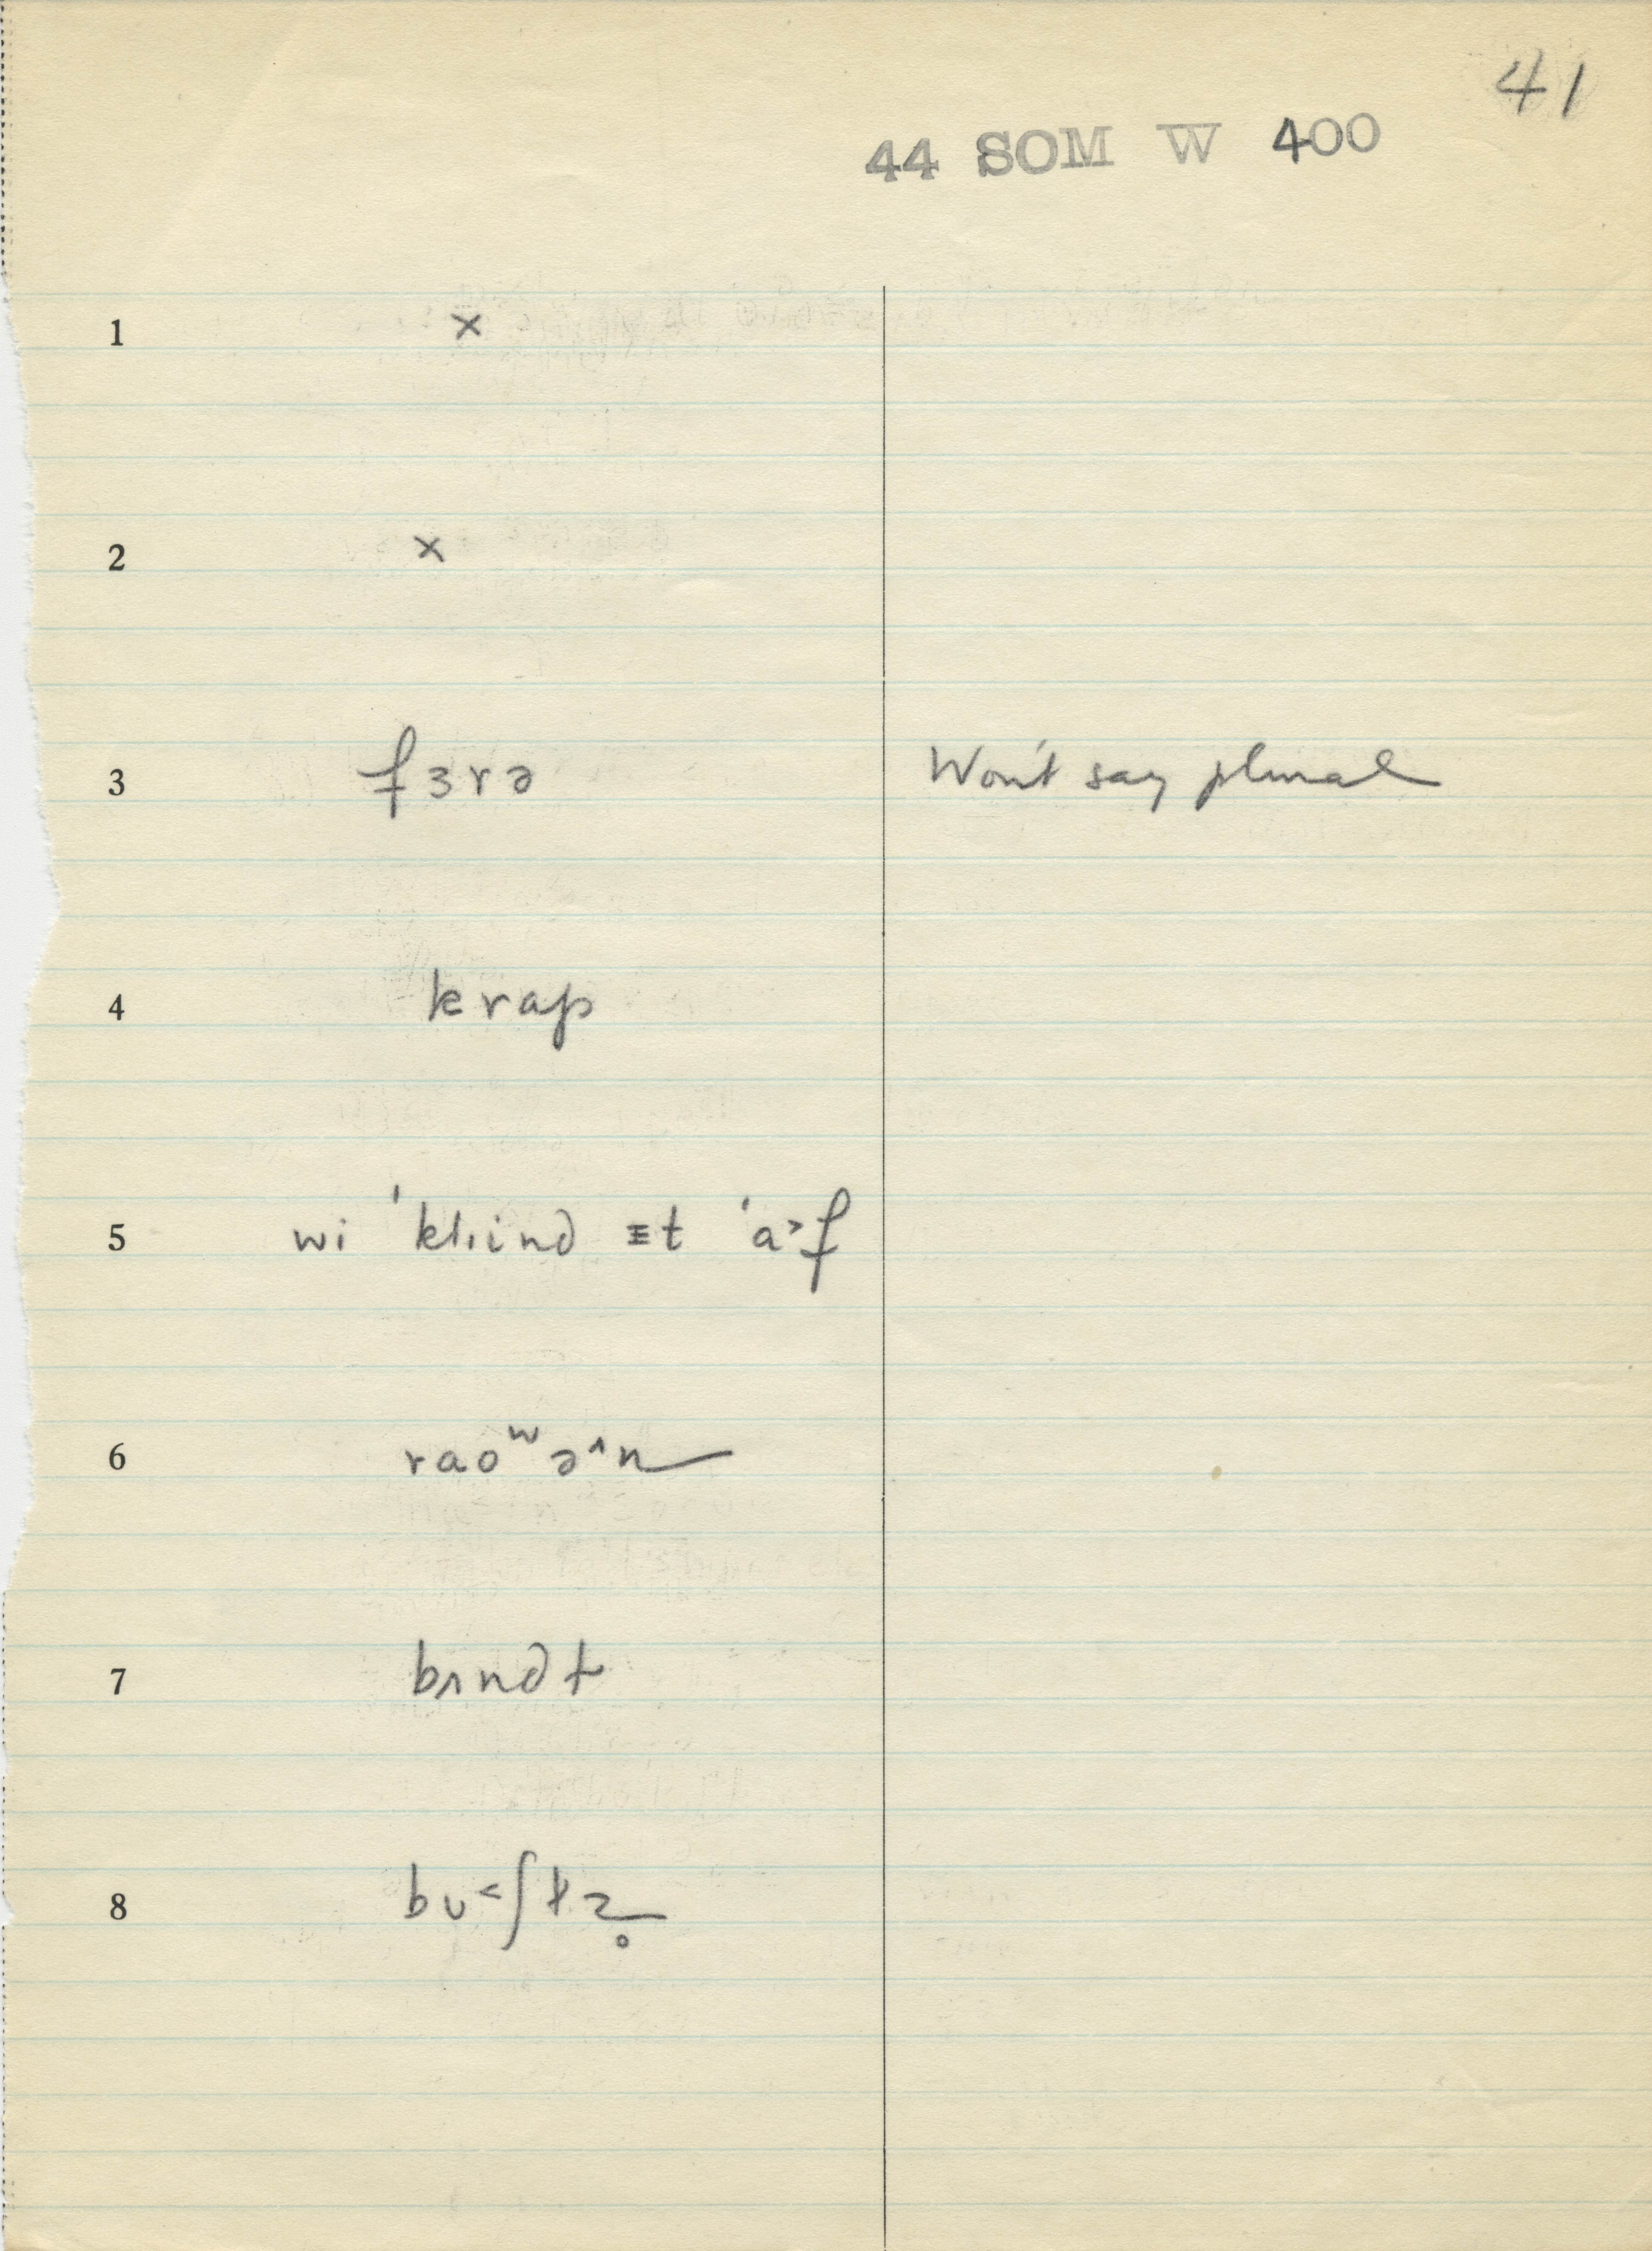 41
44 SOM W 400
1 ×
2 ×
3 fɜrə Won't say plural
4 krap
5 wi ˈkliind ɪt ˈa˃f
6 raoʷə˄n
7 bʌndɫ
8 bʊ˂ʃ